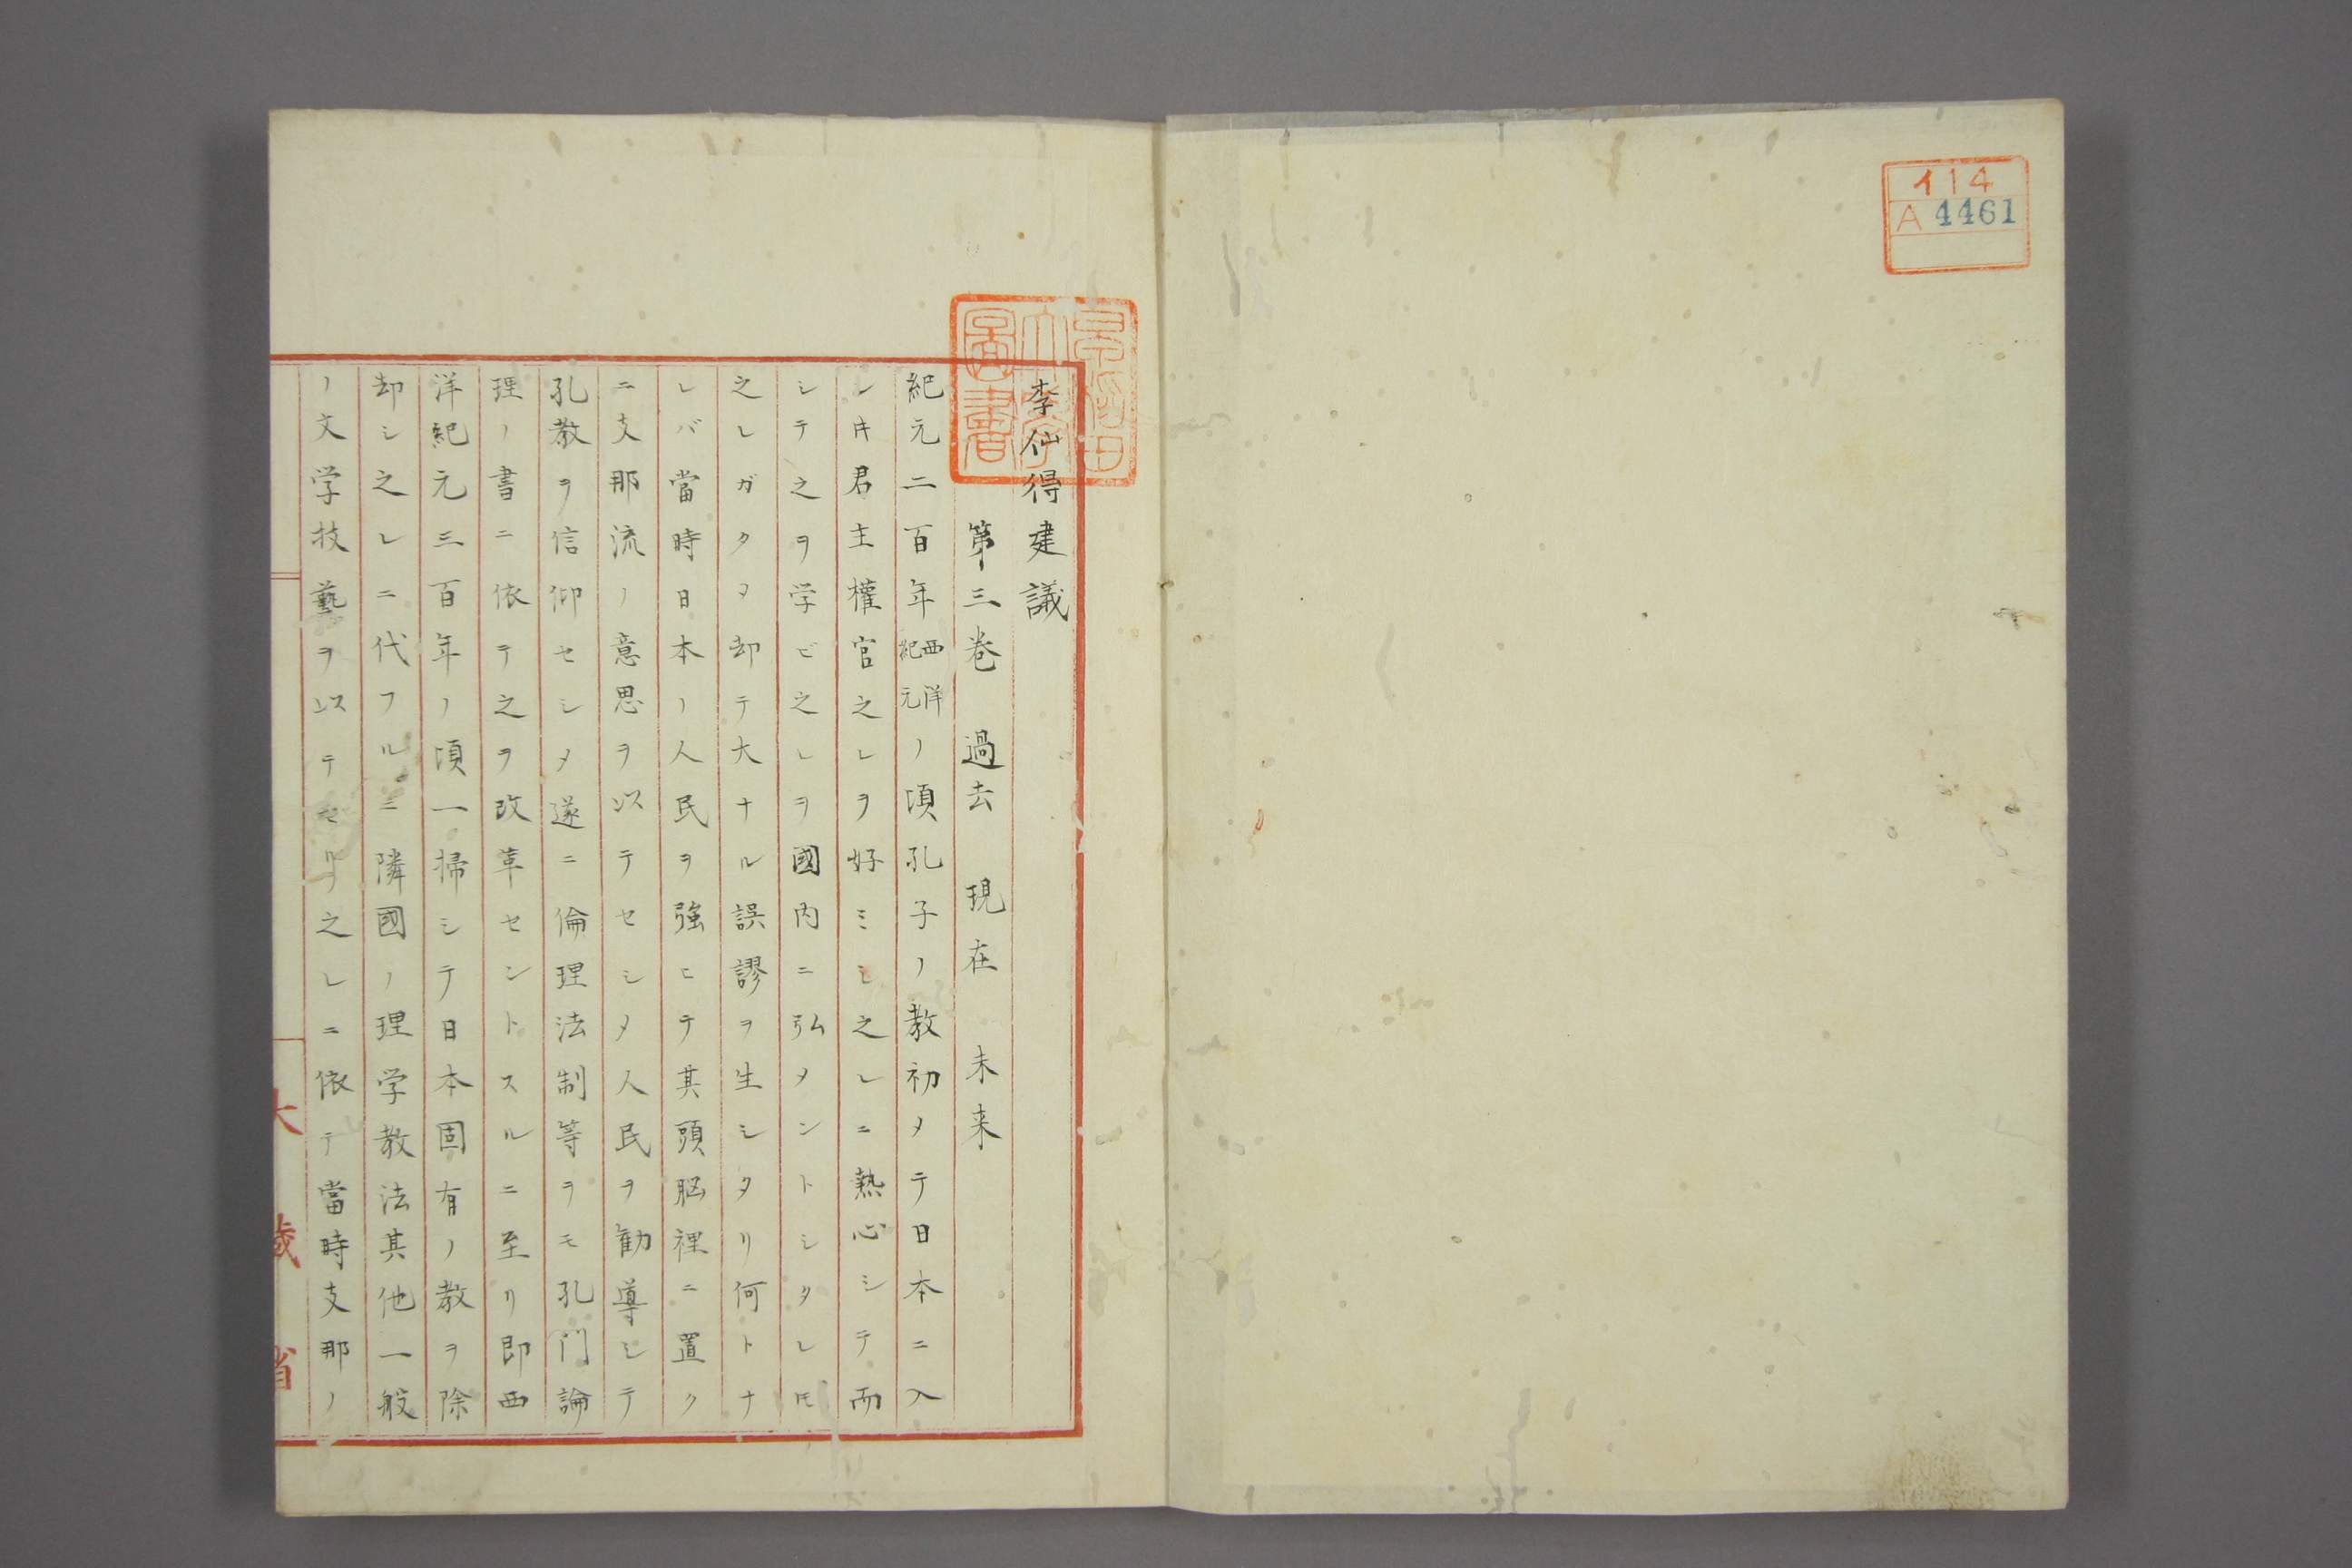 イ14
A 4461
早稲田大学図書
李仙得建議
第三巻 過去 現在 未来
紀元二百年西洋紀元ノ頃孔子ノ教初メテ日本ニ入
レ𪜈君主權官之レヲ好ミシ之レニ熱心シテ而
シテ之ヲ学ビ之レヲ國内ニ弘メントシタレ𪜈
之レガタヌ却テ大ナル誤謬ヲ生シタリ何トナ
レバ當時日本ノ人民ヲ強ヒテ其頭脳裡ニ置ク
ニ支那流ノ意思ヲ以テセシメ人民ヲ勧導シテ
孔教ヲ信仰セシメ遂ニ倫理法制等ヲモ孔门論
理ノ書ニ依テ之ヲ改革セントスルニ至リ即西
洋紀元三百年ノ頃一掃シテ日本固有ノ教ヲ除
却シ之レニ代フルニ隣國ノ理学教法其他一般
ノ文学技藝ヲ以テセリ之レニ依テ當時支那ノ
大藏省